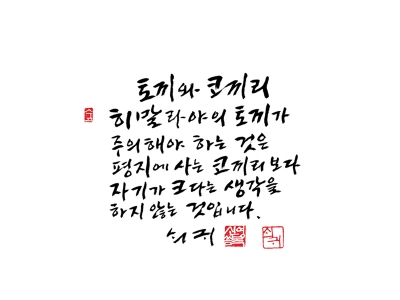 토끼와 코끼리
히말라야의 토끼가
주의해야 하는 것은
평지에 사는 코끼리보다
자기가 크다는 생각을
하지 않는 것입니다.
쇠귀